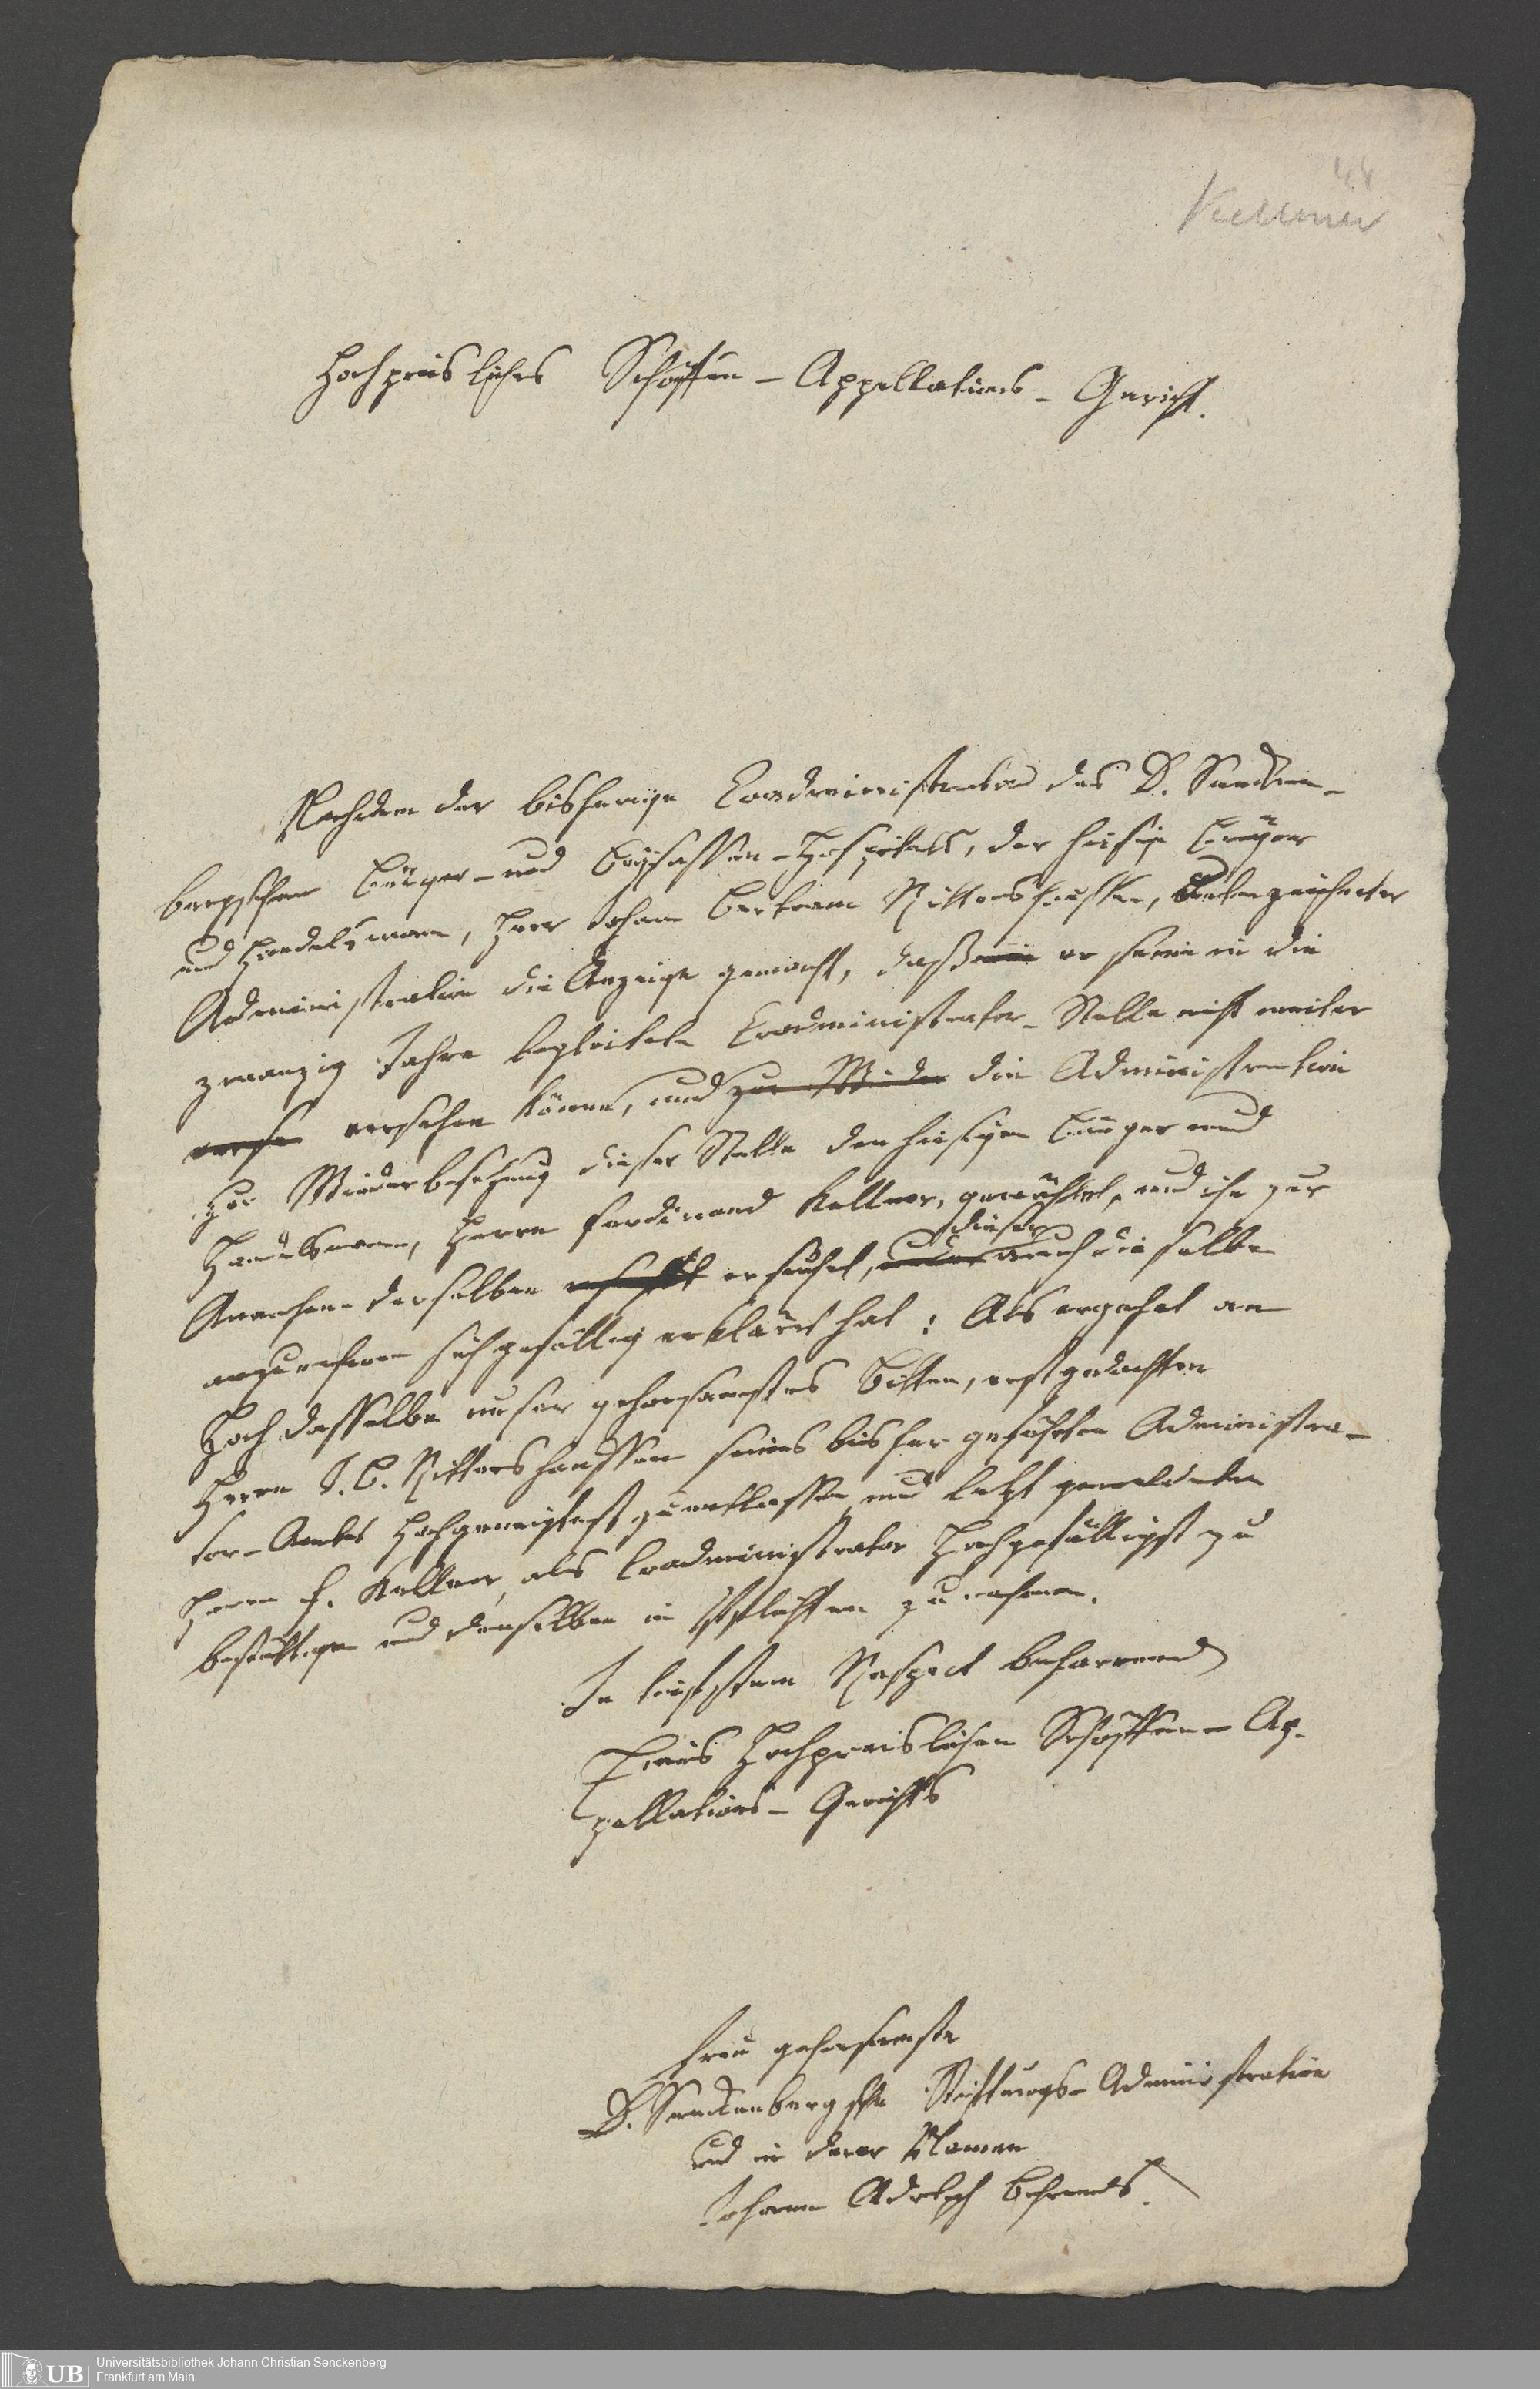 44
Kellner
Hochpreisliches Schöffen-Appellations-Gericht.
Nachdem der bisherige Coadministrator des D. Sencken-
bergischen Bürger- und Beysassen-Hospitals, der hiesige Bürger
und Handelsmann, Herr Johann Bertram Rittershaussen, Unterzeichneter
Administration die Anzeige gemacht, daß er seine in die
zwanzig Jahre begleitete Coadministrator-Stelle nicht weiter
verse versehen könne, und zur Wieder die Administration
zur Wiederbesetzung dieser Stelle den hiesigen Bürger und
Handelsmann, Herrn Ferdinand Kellner, gewählet, und ihn zur
dieser
Annahme derselben ersucht ersuchet, auch dieselbe
anzunehmen sich gefällig erkläret hat: Als ergehet an
Hochdasselbe unser gehorsamstes Bitten, erstgedachten
Herrn J. B. Rittershaussen seines bisher geführten Administra-
tor-Amtes Hochgeneigtest zu entlassen und letzt gemeldeten
Herrn F. Kellner, als Coadministrator Hochgefälligst zu
bestättigen und denselben in Pflichten zu nehmen.
In tiefstem Respect beharrend
Eines Hochpreislichen Schöffen-Ap-
pellations-Gerichts
treu gehorsamste
D. Senckenbergische Stiftungs-Administration
und in deren Namen
Johann Adolph Behrends.
UB
Universitätsbibliothek Johann Christian Senckenberg
Frankfurt am Main